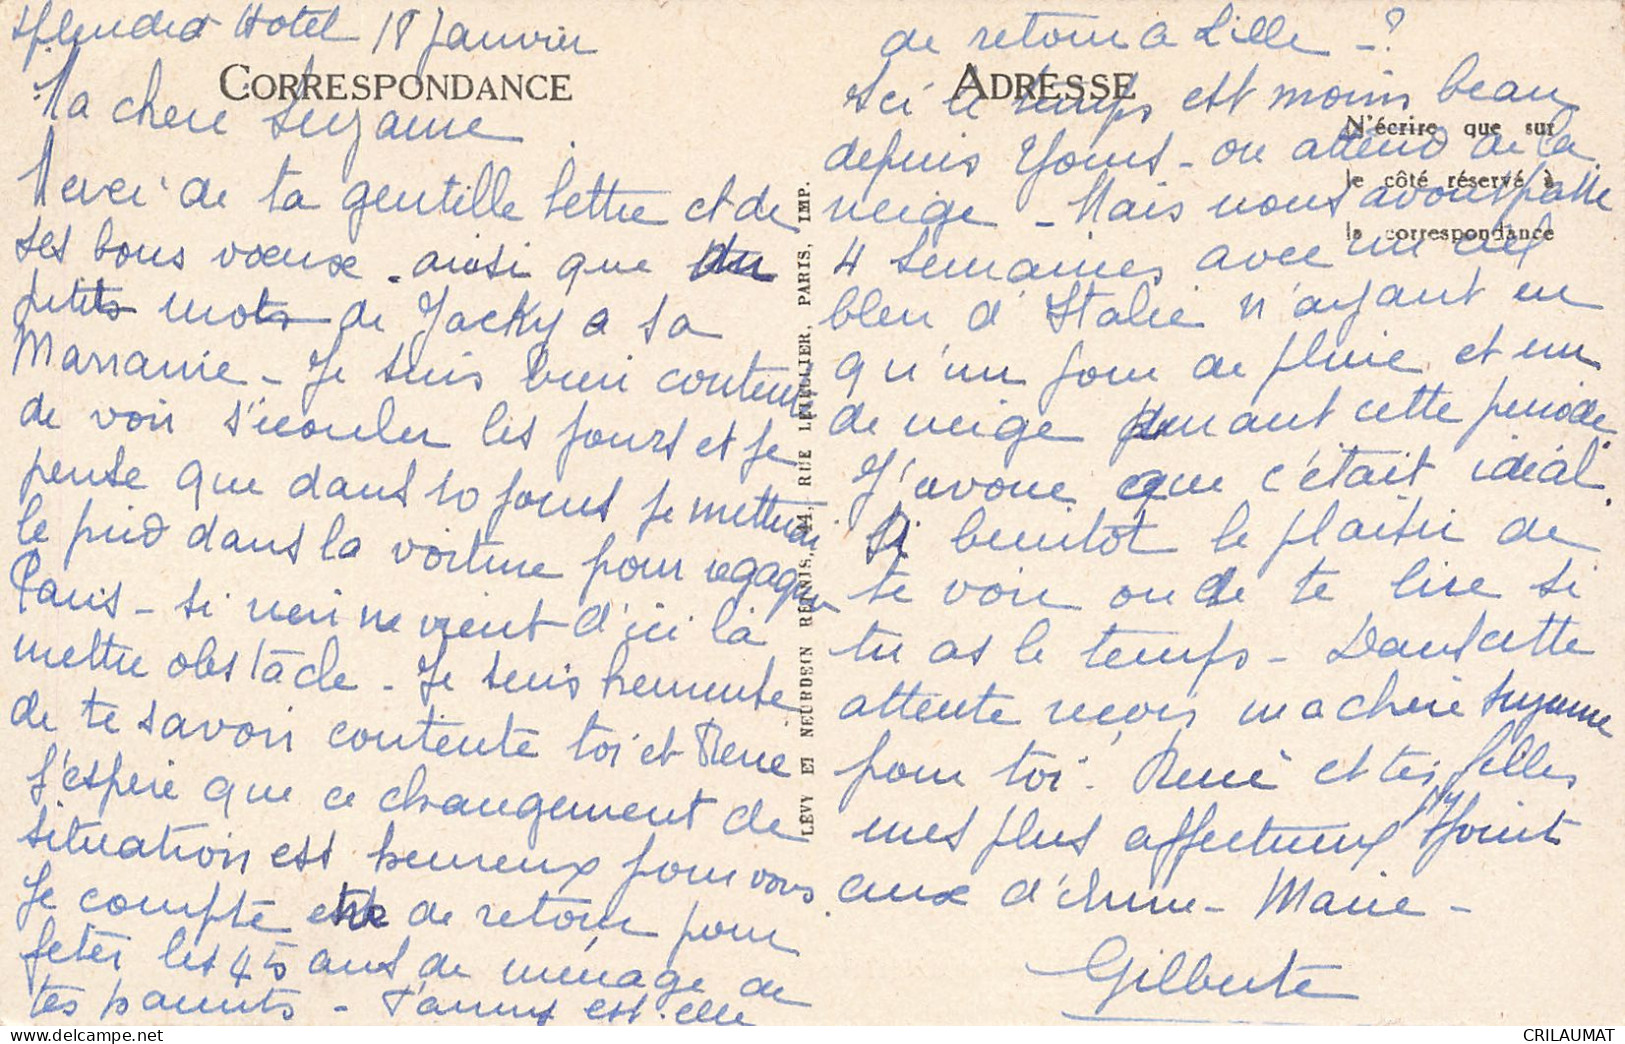 Splendid Hotel 18 Janvier
CORRESPONDANCE
Ma chere Suzanne
Merci de ta gentille lettre et de
ses bons voeux - ainsi que du
petits mots de Jacky a sa
Marranie - Je suis bien contente
de voir s'écouler les jours et je
pense que dans 10 jours je mettrai
le pied dans la voiture pour regagner
Paris - si rien ne vient d'ici là
mettre obstacle - Je suis heureuse
de te savoir contente toi et René
J'espère que ce changement de
situation est heureux pour vous
Je compte être de retour pour
fêter les 45 ans de ménage de
tes parents - Tanny est-elle
LÉVY ET NEURDEIN RÉUNIS, 44, RUE LETELLIER, PARIS, IMP.
de retour a Lille - ?
ADRESSE
N'écrire que sur
le côté réservé à
la correspondance
Ici le temps est moins beau
depuis 4 jours - on attend de la
neige - Mais nous avons passé
4 semaines avec un ciel
bleu d'Italie n'ayant eu
qu'un jour de pluie et un
de neige durant cette période
J'avoue que c'était idéal.
A bientôt le plaisir de
te voir ou de te lire si
tu as le temps - Dans cette
attente reçois ma chère Suzanne
pour toi. René et tes filles
mes plus affectueux joints
aux d'Anne - Marie -
Gilberte
CRILAUMAT